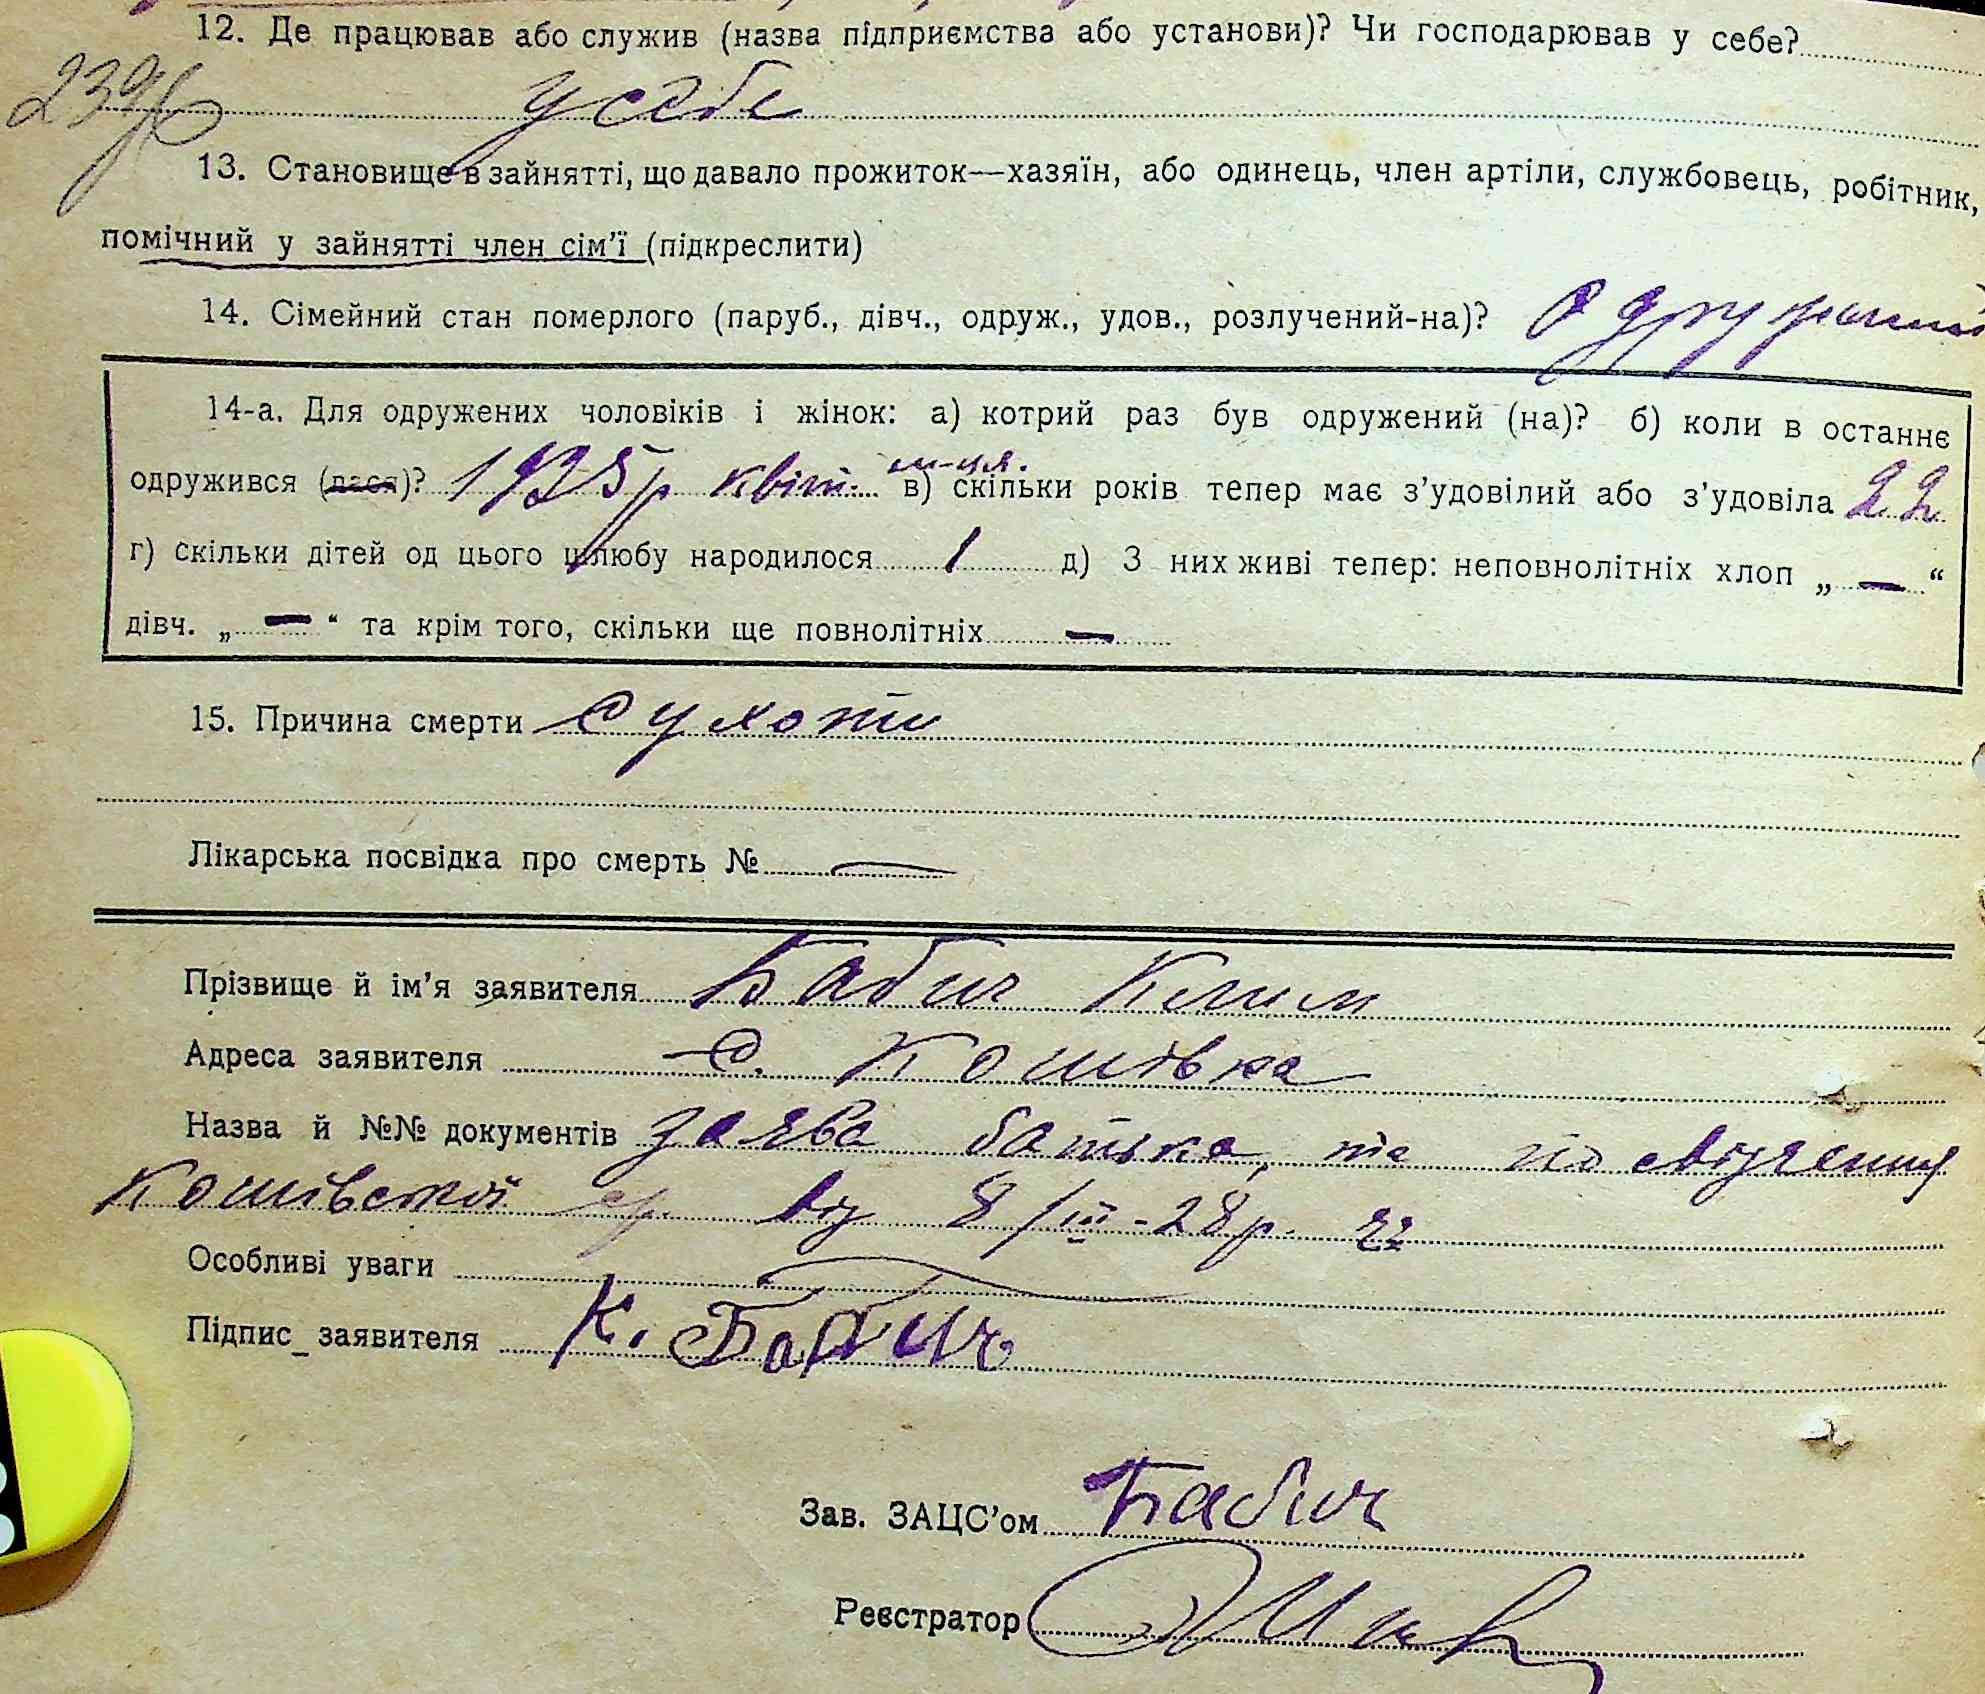 12. Де працював або служив (назва підприємства або установи)? Чи господарював у себе?
у себе
13. Становище в зайнятті, що давало прожиток—хазяїн, або одинець, член артіли, службовець, робітник,
помічний у зайнятті член сім'ї (підкреслити)
14. Сімейний стан померлого (паруб., дівч., одруж., удов., розлучений-на)? одружений
14-а. Для одружених чоловіків і жінок: а) котрий раз був одружений (на)? б) коли в останнє
одружився (лася)? 1925 р квіт. м-ця. в) скільки років тепер має з'удовілий або з'удовіла 22
г) скільки дітей од цього шлюбу народилося 1 д) З них живі тепер: неповнолітніх хлоп „ — “
дівч. „ — “ та крім того, скільки ще повнолітніх —
15. Причина смерти сухоти
Лікарська посвідка про смерть № —
Прізвище й ім'я заявителя Бабич Клим
Адреса заявителя с. Кошівка
Назва й №№ документів заява батька, та посвідчення
Кошівської с/р. від 8/III-28р. 22
Особливі уваги —
Підпис заявителя К. Бабич
Зав. ЗАЦС'ом Бабич
Реєстратор